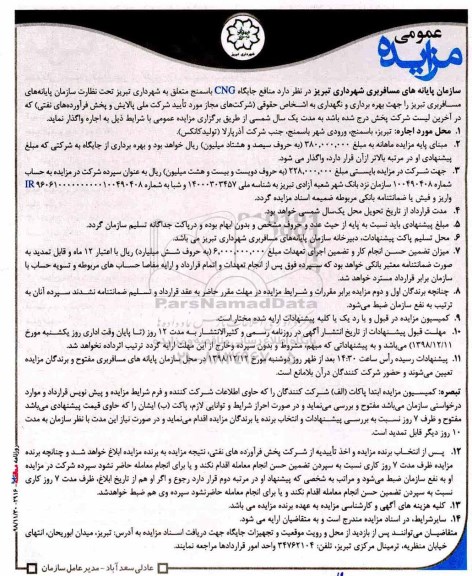 عمومی
مزایده
شهرداری تبریز
سازمان پایانه های مسافربری شهرداری تبریز در نظر دارد منافع جایگاه CNG باسمنج متعلق به شهرداری تبریز تحت نظارت سازمان پایانه‌های
مسافربری تبریز را جهت بهره برداری و نگهداری به اشخاص حقوقی (شرکت‌های مجاز مورد تأیید شرکت ملی پالایش و پخش فرآورده‌های نفتی) که
در آخرین لیست شرکت پخش درج شده باشد به مدت یک سال شمسی از طریق برگزاری مزایده عمومی با شرایط ذیل به اجاره واگذار نماید.
۱. محل مورد اجاره: تبریز، باسمنج، ورودی شهر باسمنج، جنب شرکت آذرپارلا (تولیدکانکس).
۲. مبنای پایه مزایده ماهانه به مبلغ ۳۸۰,۰۰۰,۰۰۰ (به حروف سیصد و هشتاد میلیون) ریال خواهد بود و بهره برداری از جایگاه به شرکتی که مبلغ
پیشنهادی او در مرتبه بالاتر ازآن قرار دارد، واگذار می شود.
۳. جهت شرکت در مزایده بایستی مبلغ ۲۲۸,۰۰۰,۰۰۰ (به حروف دویست و بیست و هشت میلیون) ریال به عنوان سپرده شرکت در مزایده به حساب
شماره ۱۰۰۴۹۰۴۰۸ سازمان نزد بانک شهر شعبه آزادی تبریز به شناسه ملی ۱۴۰۰۰۳۰۳۴۵۷ و شبا به شماره IR ۹۶۰۶۱۰۰۰۰۰۰۰۰۱۰۰۴۹۰۴۰۸
واریز و فیش یا ضمانتنامه بانکی مربوطه ضمیمه اسناد مزایده گردد.
۴. مدت قرارداد از تاریخ تحویل محل یک‌سال شمسی خواهد بود.
۵. مبلغ پیشنهادی باید نسبت به پایه از حیث عدد و حروف مشخص و بدون ابهام بوده و درپاکت جداگانه تسلیم سازمان گردد.
۶. محل تسلیم پاکت پیشنهادات، دبیرخانه سازمان پایانه‌های مسافربری شهرداری تبریز می باشد.
۷. میزان تضمین حسن انجام کار و تضمین اجرای تعهدات مبلغ ۶,۰۰۰,۰۰۰,۰۰۰ (به حروف شش میلیارد) ریال با اعتبار ۱۲ ماه و قابل تمدید به
صورت ضمانتنامه معتبر بانکی خواهد بود که سپرده فوق پس از انجام تعهدات و اتمام قرارداد و ارایه مفاصا حساب های مربوطه و تسویه حساب با
سازمان برابر قرارداد مسترد خواهد شد.
۸. چنانچه برندگان اول و دوم مزایده برابر مقررات و شرایط مزایده در مهلت مقرر حاضر به عقد قرارداد و تسلیم ضمانتنامه نشدند سپرده آنان به
ترتیب به نفع سازمان ضبط می‌شود.
۹. کمیسیون مزایده در قبول و یا رد یک یا کلیه پیشنهادات ارایه شده مختار است.
۱۰. مهلت قبول پیشنهادات از تاریخ انتشار آگهی در روزنامه رسمی و کثیرالانتشار به مدت ۱۲ روز (تا پایان وقت اداری روز یکشنبه مورخ
۱۳۹۸/۱۲/۱۱) می‌باشد و به پیشنهاداتی که مبهم، مشروط و بدون سپرده وخارج از این مهلت ارایه گردد ترتیب اثرداده نخواهد شد.
۱۱. پیشنهادات رسیده رأس ساعت ۱۴:۳۰ بعد از ظهر روز دوشنبه مورخ ۱۳۹۸/۱۲/۱۲ در محل سازمان پایانه های مسافربری مفتوح و برندگان مزایده
تعیین می‌شوند و حضور شرکت کنندگان درآن بلامانع است.
تبصره: کمیسیون مزایده ابتدا پاکات (الف) شرکت کنندگان را که حاوی اطلاعات شرکت کننده و فرم شرایط مزایده و پیش نویس قرارداد و موارد
درخواستی سازمان می‌باشد مفتوح و بررسی می‌نماید و در صورت احراز شرایط و توانایی لازم، پاکت (ب) ایشان را که حاوی قیمت پیشنهادی می‌باشد
مفتوح و ظرف ۷ روز نسبت به بررسی پیشنهادات و انتخاب برنده یا برندگان مزایده اقدام می‌نماید و در صورت نیاز این مدت با نظر سازمان به مدت
۱۰ روز دیگر قابل تمدید است.
۱۲. پس از انتخاب برنده مزایده و اخذ تأییدیه از شرکت پخش فرآورده های نفتی، نتیجه مزایده به برنده مزایده ابلاغ خواهد شد و چنانچه برنده
مزایده ظرف مدت ۷ روز کاری نسبت به سپردن تضمین حسن انجام معامله اقدام نکند و یا برای انجام معامله حاضر نشود سپرده شرکت در مزایده
او به نفع سازمان ضبط می‌شود و مراتب به شخصی که پیشنهاد او در مرتبه دوم قرار دارد رجوع و اگر او هم از تاریخ ابلاغ، ظرف مدت ۷ روز کاری
نسبت به سپردن تضمین حسن انجام معامله اقدام نکند و یا برای انجام معامله حاضرنشود سپرده وی هم ضبط خواهدشد.
۱۳. کلیه هزینه های آگهی و کارشناسی مزایده به عهده برنده مزایده می باشد.
۱۴. سایرشرایط، در اسناد مزایده مندرج است و به متقاضیان ارایه می شود.
متقاضیـان می‌توانند پس از بازدید از محل و رویت موقعیت و تجهیزات جایگاه جهت دریافت اسناد مزایده به آدرس: تبریز، میدان ابوریحان، انتهای
خیابان منظریه، ترمینال مرکزی تبریز، تلفن: ۳۴۷۶۲۱۰۴ واحد امور قراردادها مراجعه نمایند.
عادلی سعدآباد - مدیرعامل سازمان
ParsNamadData